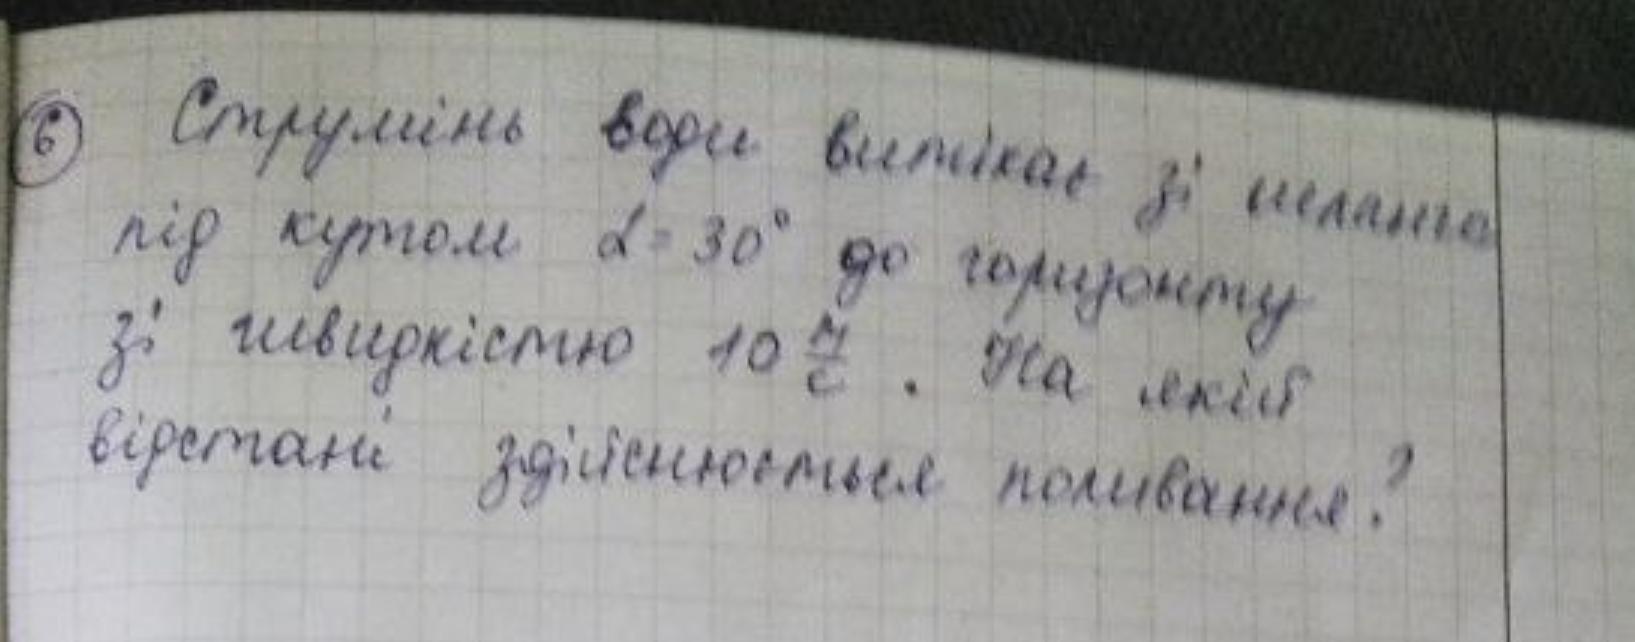 6 Струмінь води витікає зі шланга
під кутом α = 30° до горизонту
зі швидкістю 10 м/с. На якій
відстані здійснюється поливання?